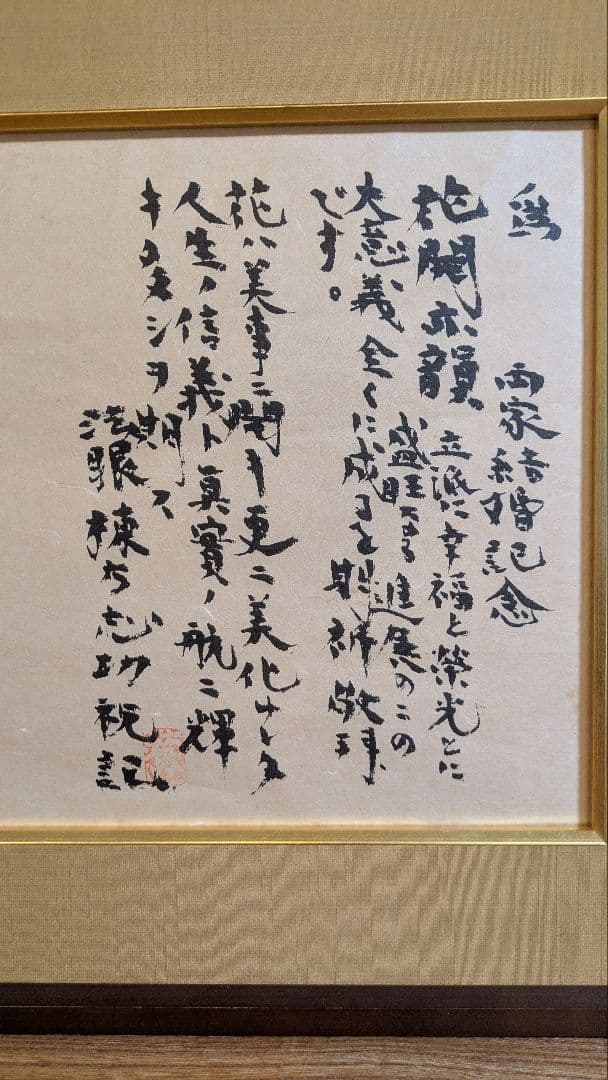 為
両家結婚記念
花開水韻
立派に幸福と榮光とに
盛旺なる進展のこの
大意義全くに成ると
敬拝
です。
花ハ美事ニ開キ更ニ美化ナシタ
人生ノ信義ト真實ノ航ニ輝
キタタシヲ期ス
法眼棟方志功祝記